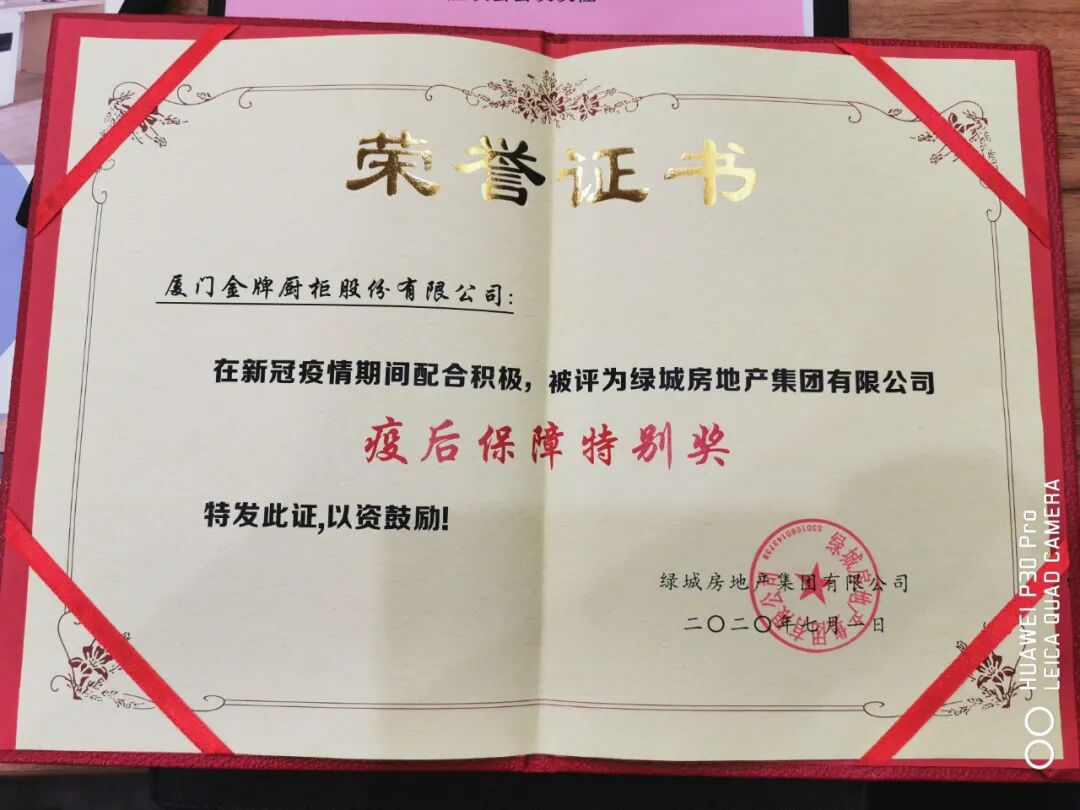 荣誉证书
厦门金牌厨柜股份有限公司:
在新冠疫情期间配合积极，被评为绿城房地产集团有限公司
疫后保障特别奖
特发此证,以资鼓励!
绿城房地产集团有限公司
二〇二〇年七月一日
绿城房地产集团有限公司
3301060143738
HUAWEI P30 Pro
LEICA QUAD CAMERA